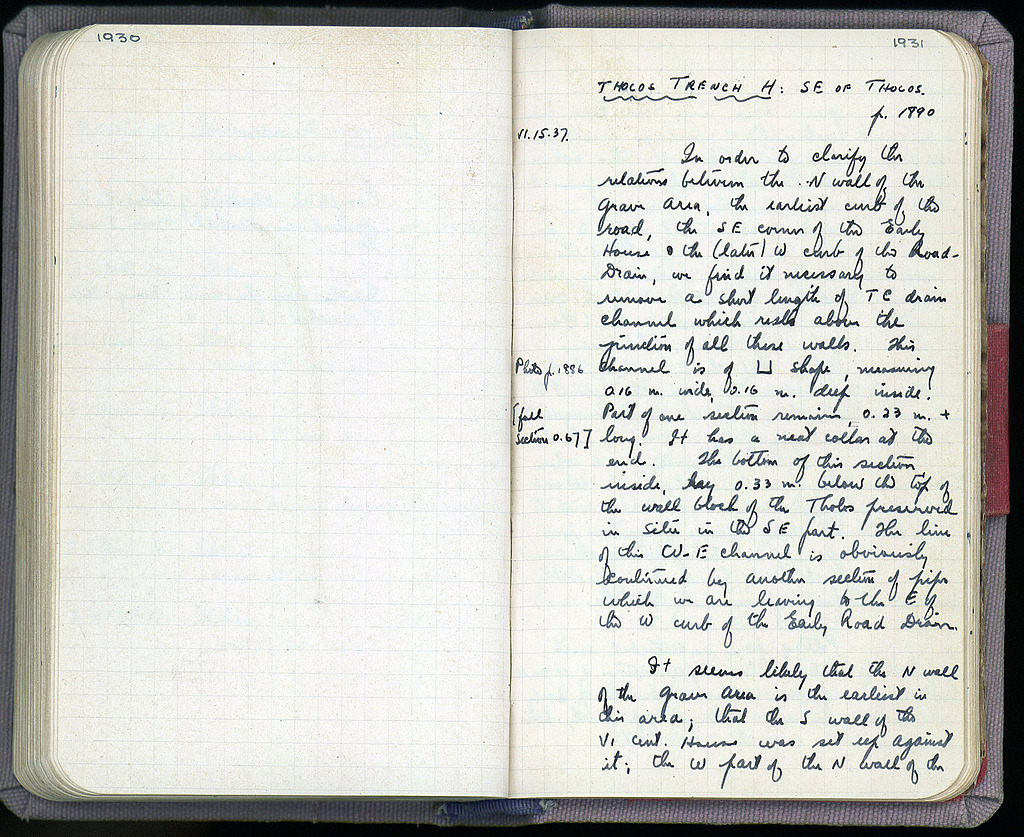 1930
1931
THOLOS TRENCH H: SE OF THOLOS.
p. 1890
VI.15.37.
In order to clarify the
relations between the N wall of the
grave area, the earliest curb of the
road, the SE corner of the Early
House & the (later) W curb of the Road-
Drain, we find it necessary to
remove a short length of TC drain
channel which rests above the
junction of all these walls. This
Photo p. 1886
channel is of ⊔ shape, measuring
0.16 m. wide, 0.16 m. deep inside.
[full
section 0.67]
Part of one section remains, 0.23 m. +
long. It has a neat collar at the
end. The bottom of this section,
inside, lay 0.33 m. below the top of
the wall block of the Tholos preserved
in situ in the SE part. The line
of this W-E channel is obviously
continued by another section of pipe
which we are leaving to the E of
the W curb of the Early Road Drain.
It seems likely that the N wall
of the grave area is the earliest in
this area; that the S wall of the
VI cent. House was set up against
it; the W part of the N wall of the